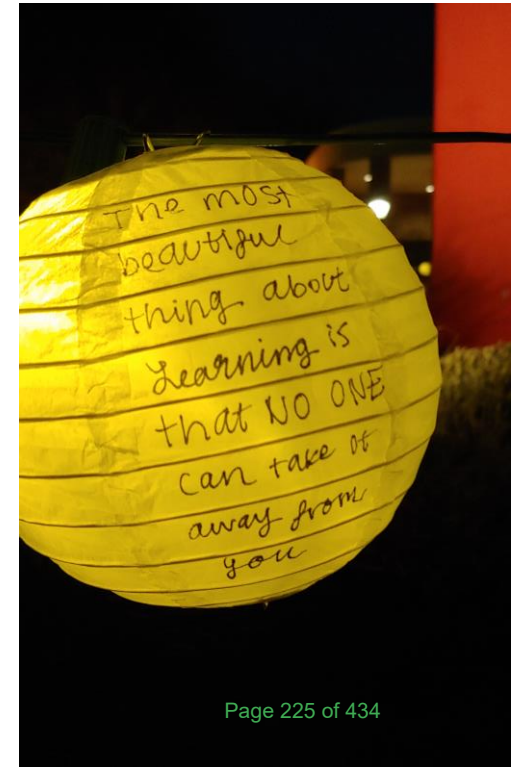 The most
beautiful
thing about
Learning is
that NO ONE
can take it
away from
you
Page 225 of 434